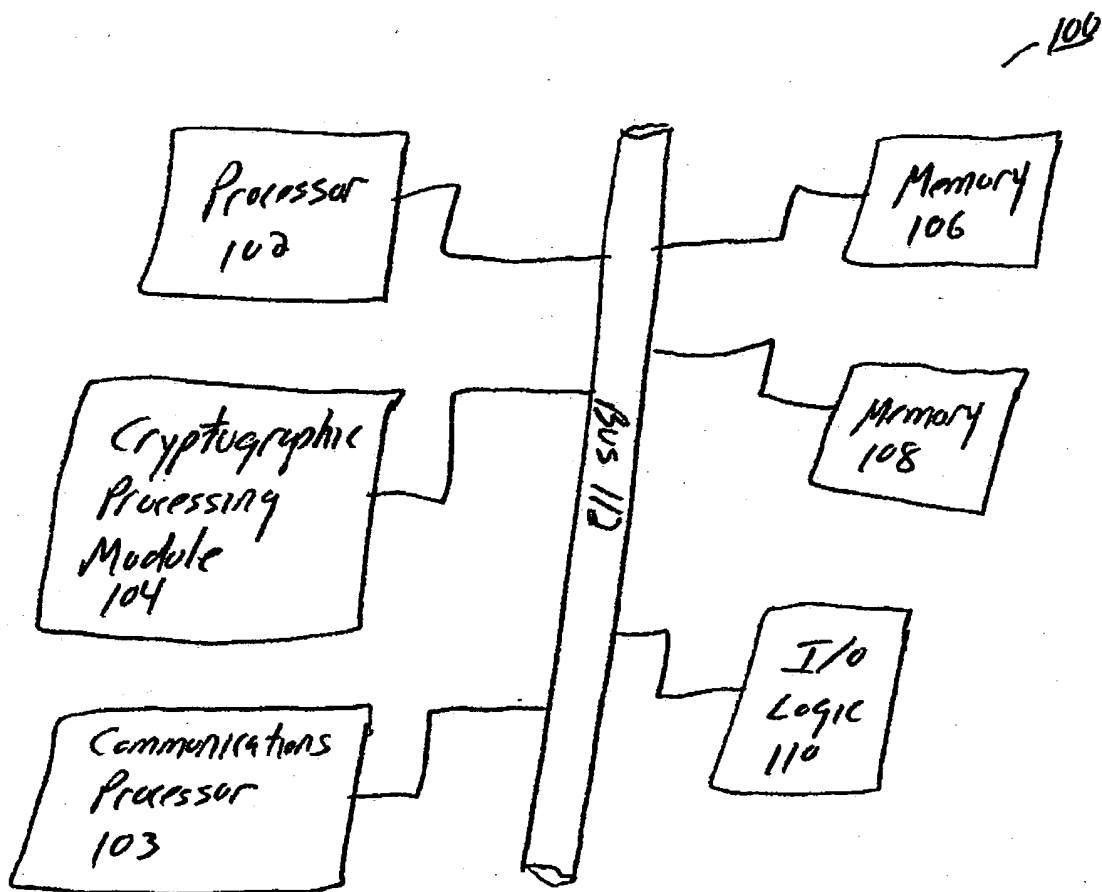 100
Processor
102
Memory
106
Cryptographic
Processing
Module
104
Bus 112
Memory
108
I/O
Logic
110
Communications
Processor
103